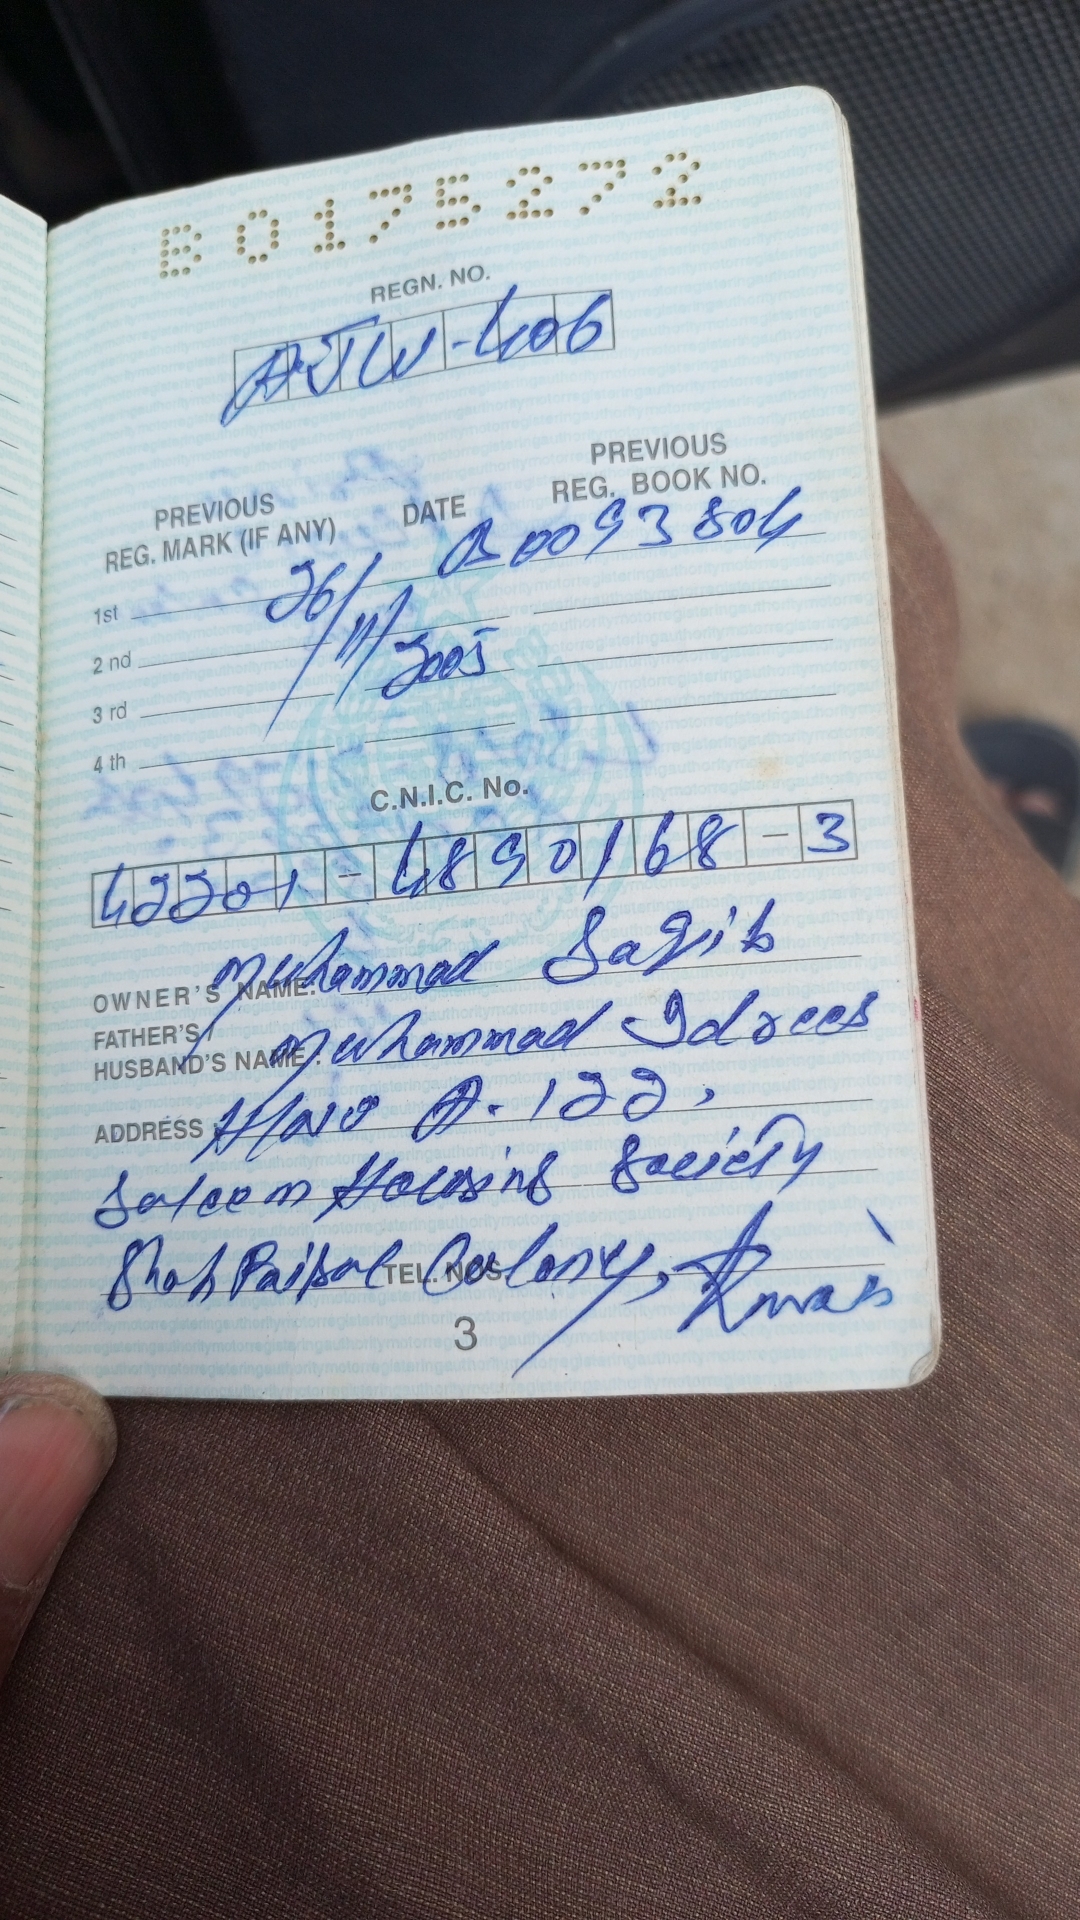 B0175272
REGN. NO.
AJW-406
PREVIOUS REG. MARK (IF ANY) DATE PREVIOUS REG. BOOK NO.
1st 26/11/2005 B0093804
2 nd
3 rd
4 th
C.N.I.C. No.
42201-4890168-3
OWNER'S NAME: Muhammad Saqib
FATHER'S / HUSBAND'S NAME: Muhammad Idrees
ADDRESS H/No A-122,
Saleem Housing Society
Shah Faisal Colony,
TEL. NOS.
3